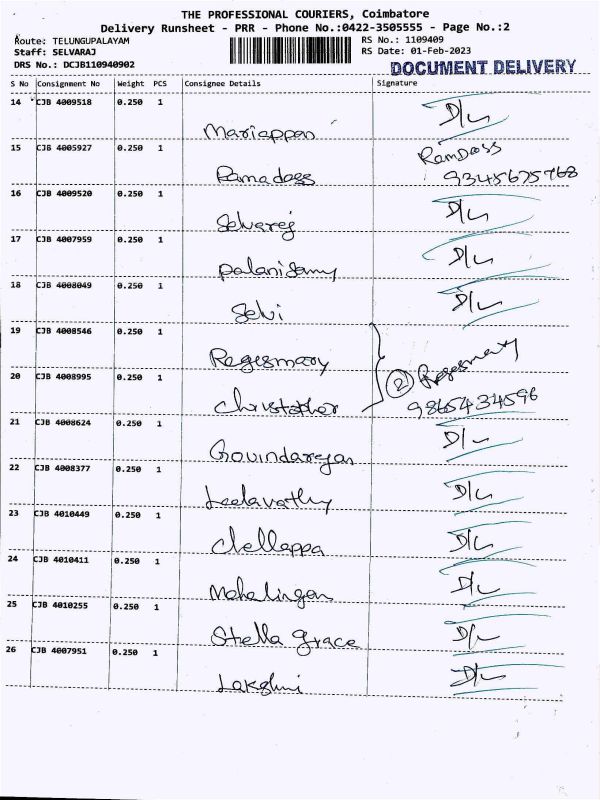 THE PROFESSIONAL COURIERS, Coimbatore
Delivery Runsheet - PRR - Phone No.:0422-3505555 - Page No.:2
Route: TELUNGUPALAYAM
RS No.: 1109409
Staff: SELVARAJ
RS Date: 01-Feb-2023
DRS No.: DCJB110940902
DOCUMENT DELIVERY
S No Consignment No Weight PCS Consignee Details Signature
14 CJB 4009518 0.250 1 Mariappan D/L
15 CJB 4005927 0.250 1 Ramadoss RamDoss
16 CJB 4009520 0.250 1 Selvaraj D/L
17 CJB 4007959 0.250 1 Palanisamy D/L
18 CJB 4008049 0.250 1 Selvi D/L
19 CJB 4008546 0.250 1 Regesmary
20 CJB 4008995 0.250 1 Christopher 2 Regesmary
9865434596
21 CJB 4008624 0.250 1 Govindarajan D/L
22 CJB 4008377 0.250 1 Leelavathy D/L
23 CJB 4010449 0.250 1 Chellappa D/L
24 CJB 4010411 0.250 1 Mahalingan D/L
25 CJB 4010255 0.250 1 Stella grace D/L
26 CJB 4007951 0.250 1 Lakshmi D/L